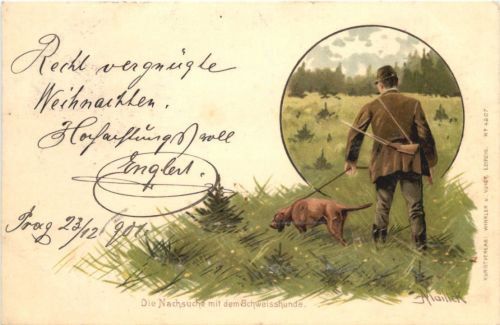 Recht vergnügte
Weihnachten.
Hochachtungsvoll
Englert.
Prag 23/12 900.
Die Nachsuche mit dem Schweisshunde.
KUNSTVERLAG: WINKLER U. VOIGT, LEIPZIG.